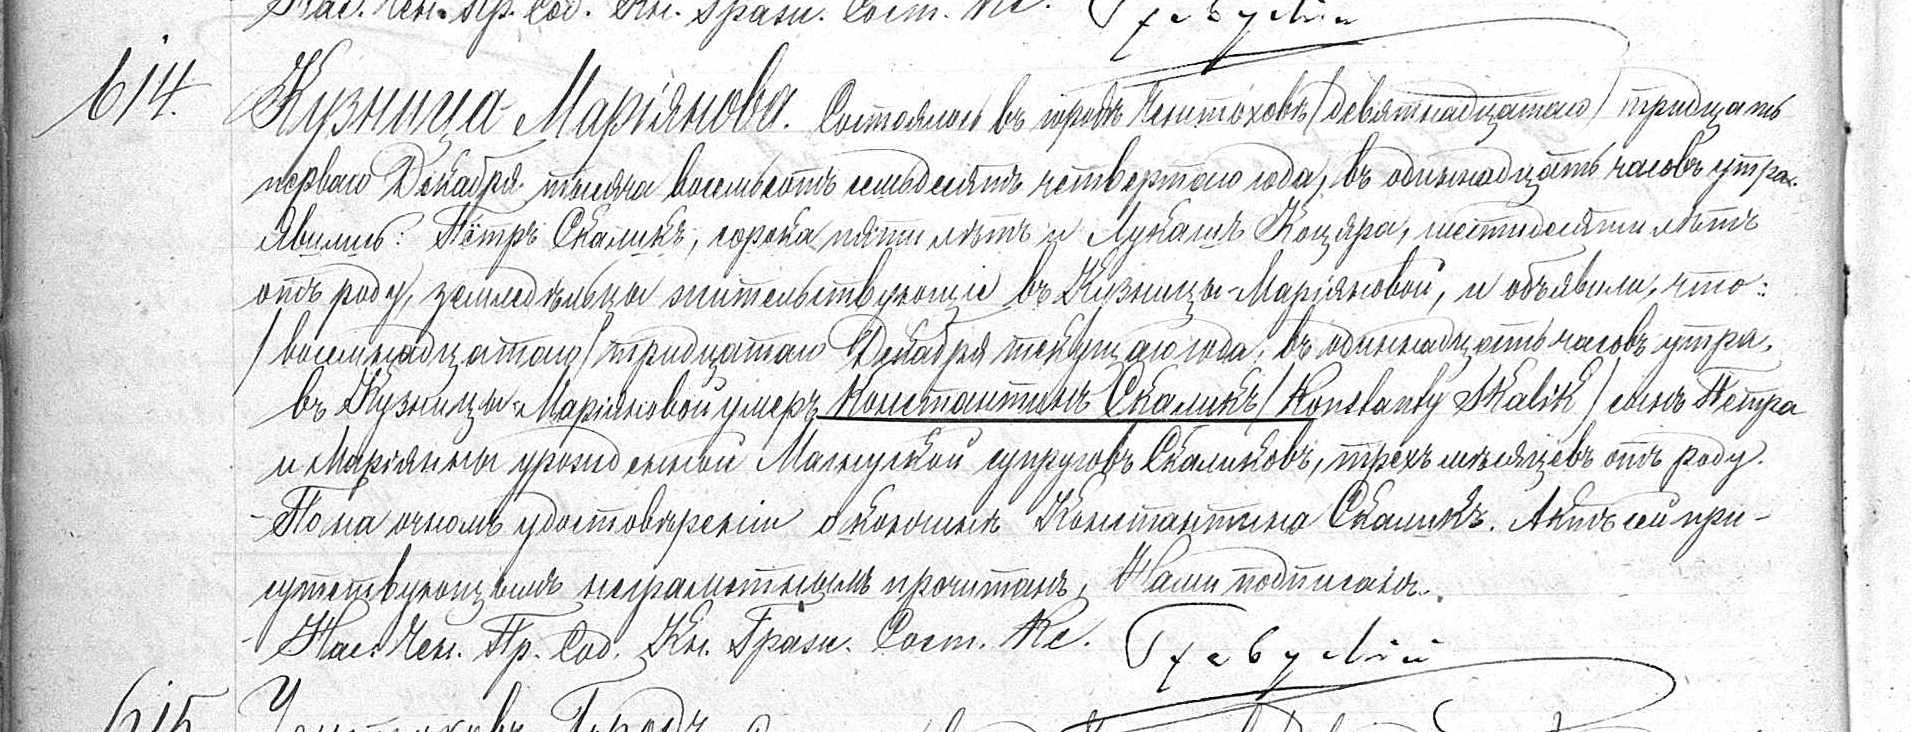 Нас. Чен. Пр. Сод. Кн. Гражн. Сост. Кс.
614.
Кузница Маріянова. Состоялось въ городѣ Ченстоховѣ (девятнадцатаго) тридцать
перваго Декабря тысяча восемьсотъ семьдесятъ четвертаго года, въ одиннадцать часовъ утра.
Явились: Пётръ Скаликъ, сорока пяти лѣтъ и Лукашъ Коцяра, шестидесяти лѣтъ
отъ роду, земледѣльцы жительствующіе въ Кузницы-Маріяновой, и объявили, что:
(восемнадцатаго) тридцатаго Декабря текущаго года, въ одиннадцать часовъ утра,
въ Кузницы-Маріяновой умеръ Константинъ Скаликъ (Konstanty Skalik) сынъ Петра
и Маріянны урожденной супруговъ Скаликовъ, трехъ мѣсяцевъ отъ роду.
По на очномъ удостовѣреніи о кончинѣ Константина Скаликъ. Актъ сей при-
сутствующимъ неграмотнымъ прочитанъ, Нами подписанъ.
Нас. Чен. Пр. Сод. Кн. Гражн. Сост. Кс.
615
Ченстоховъ Городъ